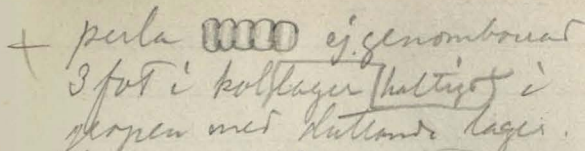 + perla ej genomborrad
3 fot i kollager (haltigt) i
gropen med sluttande lager.